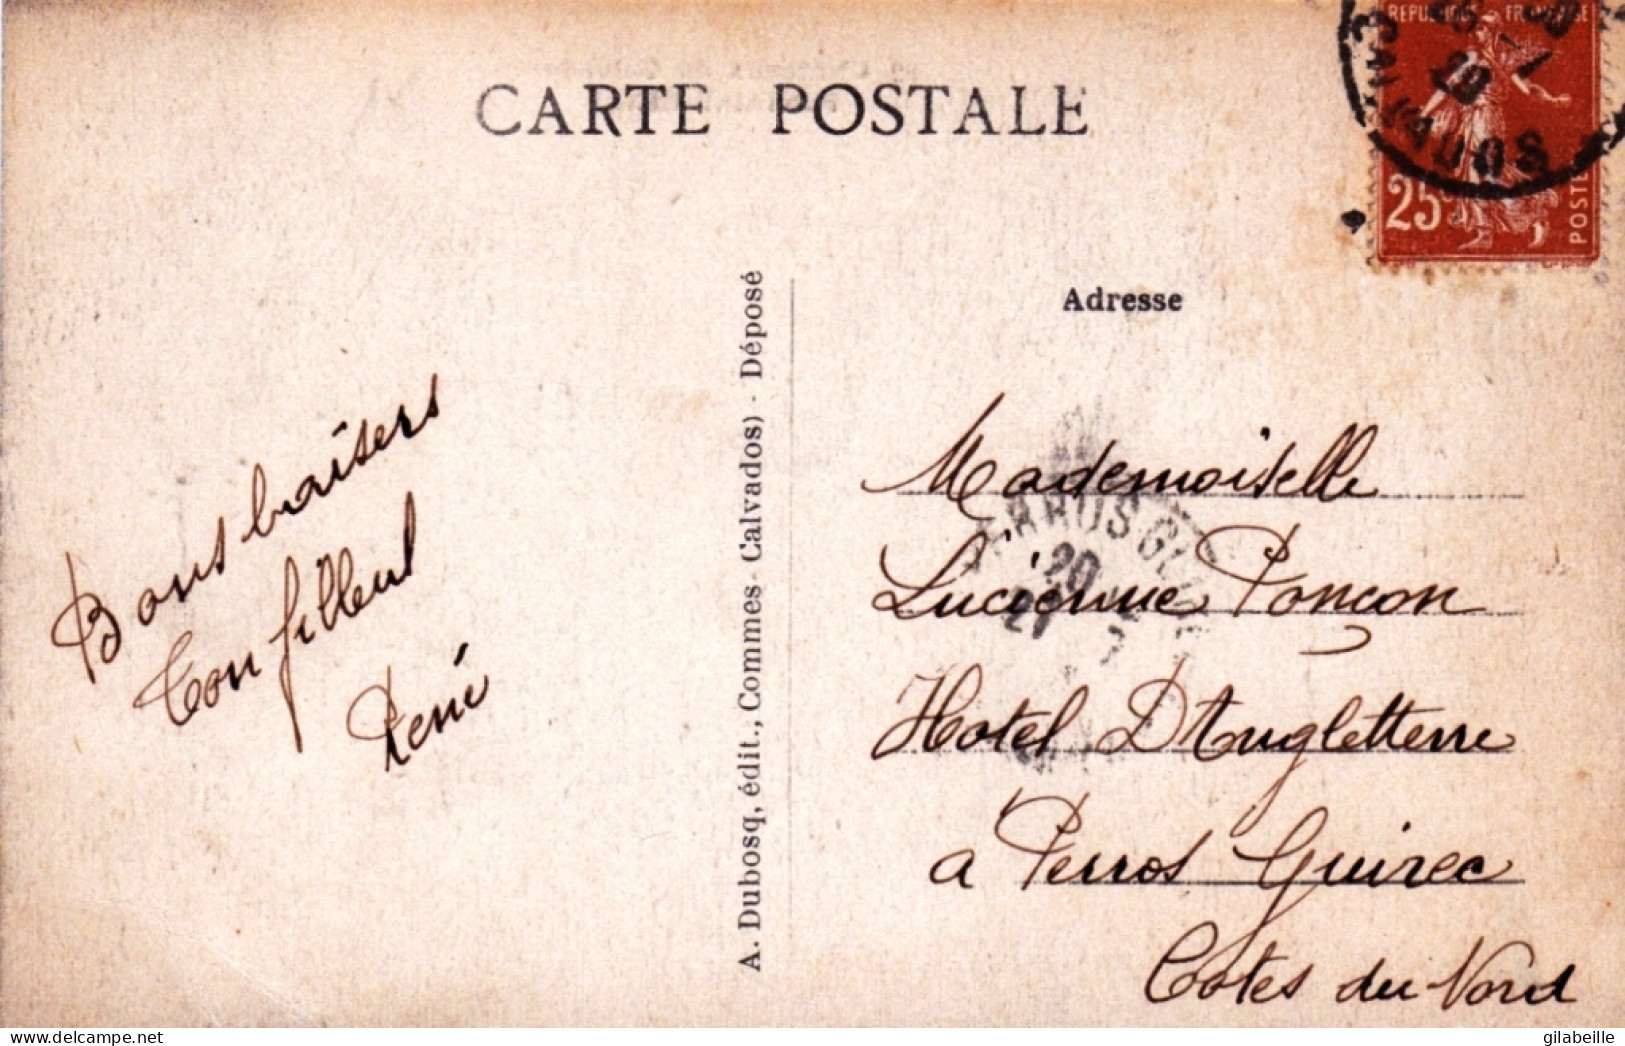 CARTE POSTALE
REPUBLIQUE FRANÇAISE
20
CALVADOS
25c
POSTES
Adresse
A. Dubosq, édit., Commes- Calvados) - Déposé
Bons baisers
Ton filleul
René
PERROS GUIREC
20
Mademoiselle
Lucienne Ponçon
Hotel D'Angletterre
a Perros Guirec
Côtes du Nord
delcampe.net
gilabeille